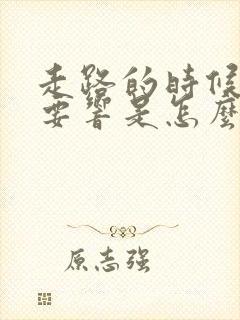 走路的時候
要響是怎麼
原志强